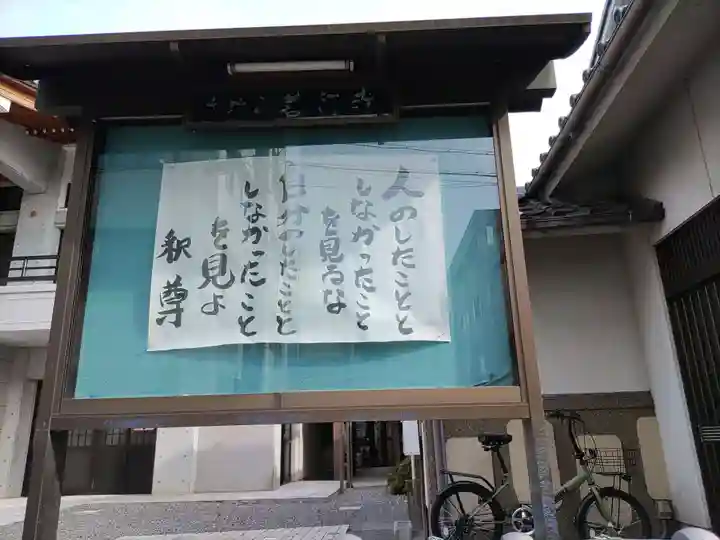 人のしたことと
しなかったこと
を見るな
自分のしたことと
しなかったこと
を見よ
釈尊